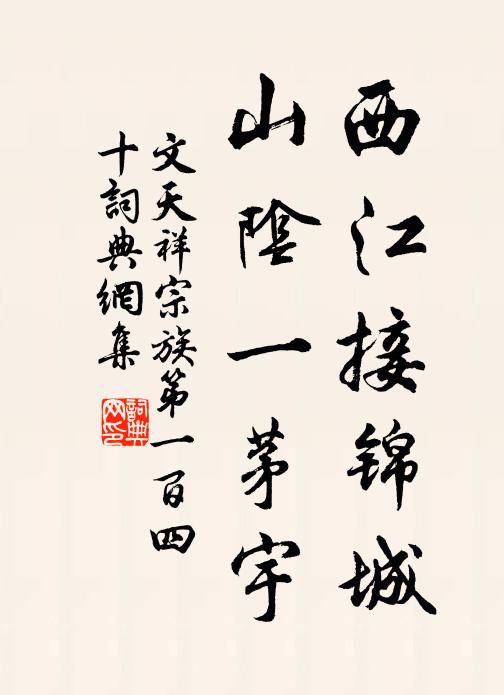 西江接锦城
山陰一茅宇
文天祥宗族第一百四
十詞典網集
詞典
网印